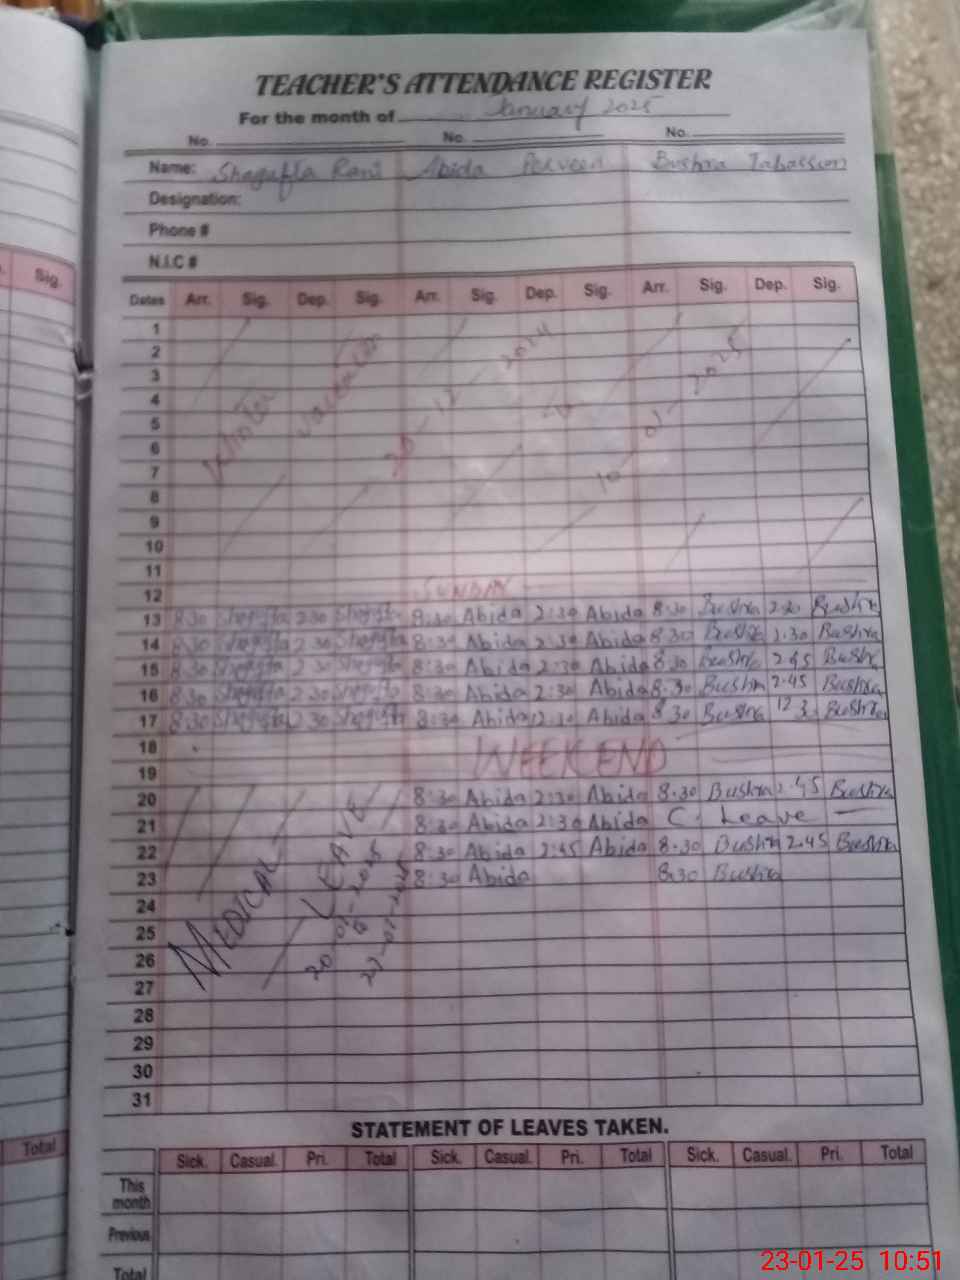 TEACHER'S ATTENDANCE REGISTER
For the month of January 2025
No. No. No.
Name: Shagufta Rani Abida Perveen Bushra Tabassum
Designation:
Phone #
N.I.C #
Sig.
Dates Arr. Sig. Dep. Sig. Arr. Sig. Dep. Sig. Arr. Sig. Dep. Sig.
1
2
3
4
5
6
7
8
9
10
Winter vacation 12-2024 to 10-01-2025
11
12 SUNDAY
13 8:30 Shagufta 2:30 Shagufta 8:30 Abida 2:30 Abida 8:30 Bushra Bushra
14 8:30 Shagufta 2:30 Shagufta 8:30 Abida 2:30 Abida 8:30 Bushra 2.30 Bushra
15 8:30 Shagufta 2:30 Shagufta 8:30 Abida 2:30 Abida 8.30 Bushra 2.45 Bushra
16 8:30 Shagufta 2:30 Shagufta 8:30 Abida 2:30 Abida 8.30 Bushra 2.45 Bushra
17 8:30 Shagufta 2:30 Shagufta 8:30 Abida 12:30 Abida 8.30 Bushra Bushra
18
19 WEEKEND
20 8:30 Abida 2:30 Abida 8.30 Bushra 2.45 Bushra
21 8:30 Abida 2:30 Abida C. Leave
22 8:30 Abida 2:45 Abida 8.30 Bushra 2.45 Bushra
23 8:30 Abida 8.30 Bushra
24
25
26
27
MEDICAL LEAVE
20-01-2025
28
29
30
31
STATEMENT OF LEAVES TAKEN.
Total Sick. Casual. Pri. Total Sick. Casual. Pri. Total Sick. Casual. Pri. Total
This month
Previous
Total
23-01-25 10:51